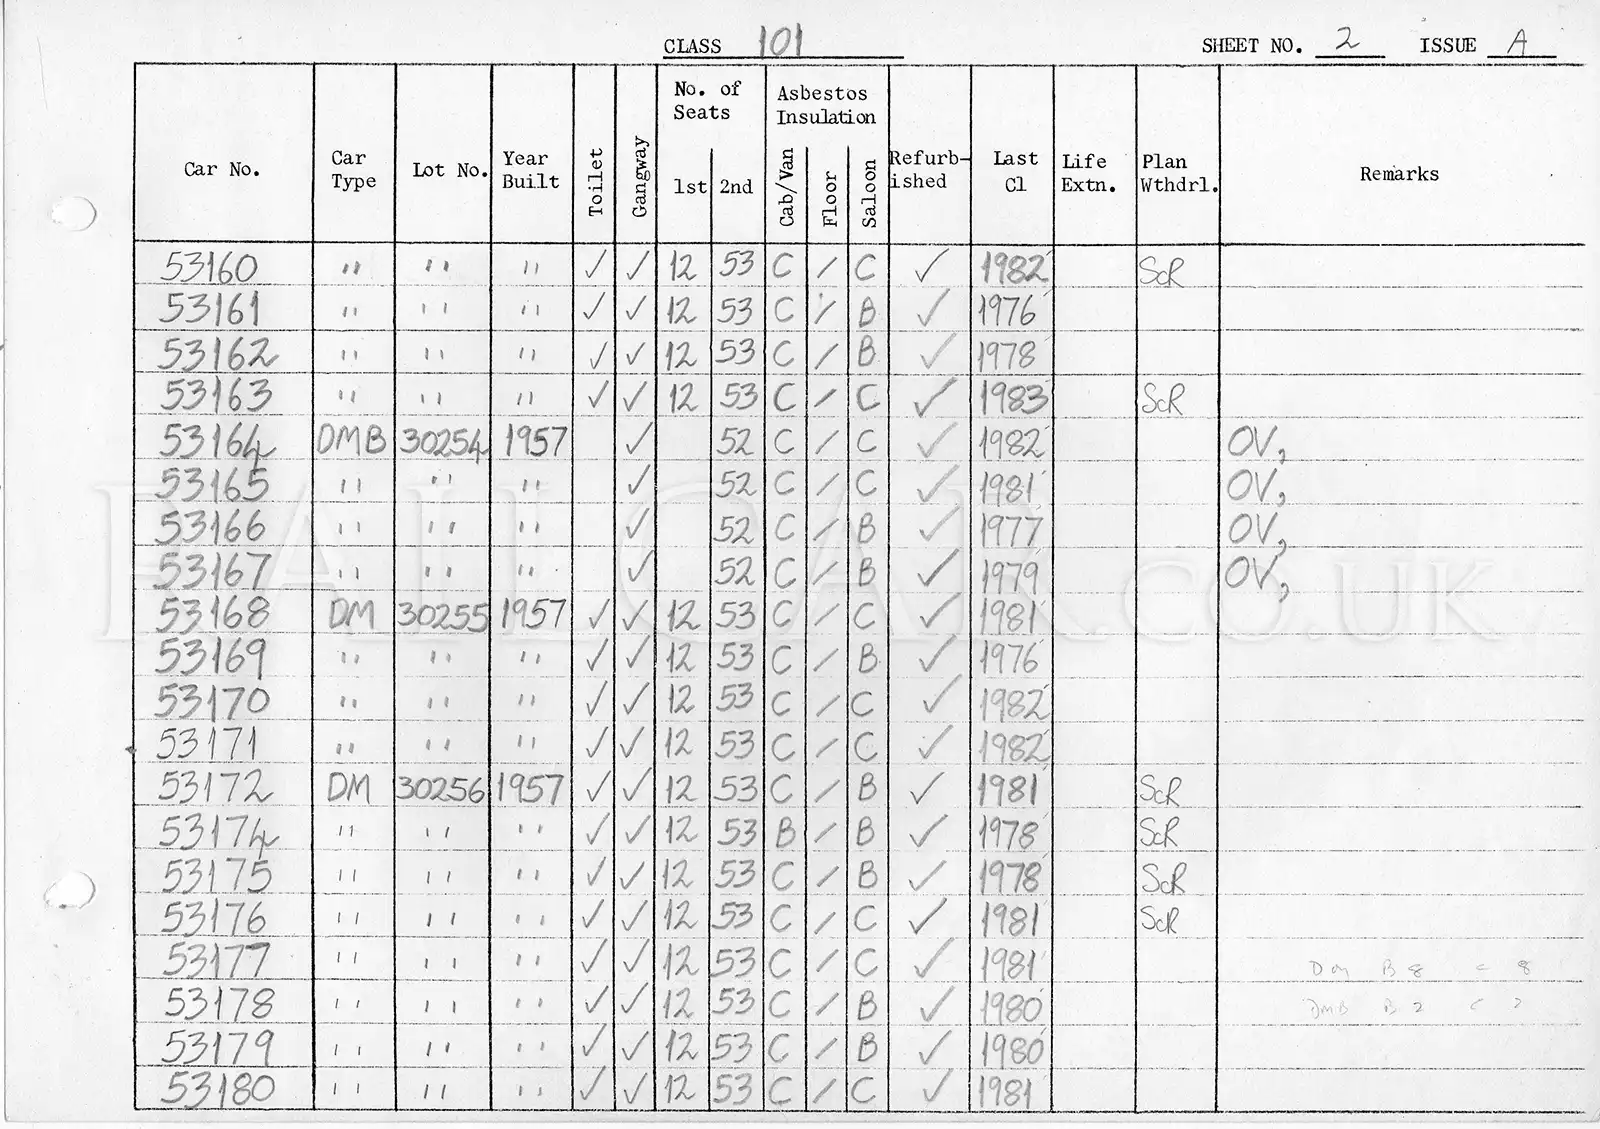 CLASS 101 SHEET NO. 2 ISSUE A
Car No. Car Type Lot No. Year Built Toilet Gangway No. of Seats 1st 2nd Asbestos Insulation Cab/Van Floor Saloon Refurb-ished Last Cl Life Extn. Plan Wthdrl. Remarks
53160 " " " ✓ ✓ 12 53 C / C ✓ 1982 ScR
53161 " " " ✓ ✓ 12 53 C / B ✓ 1976
53162 " " " ✓ ✓ 12 53 C / B ✓ 1978
53163 " " " ✓ ✓ 12 53 C / C ✓ 1983 ScR
53164 DMB 30254 1957 ✓ 52 C / C ✓ 1982 OV,
53165 " " " ✓ 52 C / C ✓ 1981 OV,
53166 " " " ✓ 52 C / B ✓ 1977 OV,
53167 " " " ✓ 52 C / B ✓ 1979 OV,
53168 DM 30255 1957 ✓ ✓ 12 53 C / C ✓ 1981
53169 " " " ✓ ✓ 12 53 C / B ✓ 1976
53170 " " " ✓ ✓ 12 53 C / C ✓ 1982
53171 " " " ✓ ✓ 12 53 C / C ✓ 1982
53172 DM 30256 1957 ✓ ✓ 12 53 C / B ✓ 1981 ScR
53174 " " " ✓ ✓ 12 53 B / B ✓ 1978 ScR
53175 " " " ✓ ✓ 12 53 C / B ✓ 1978 ScR
53176 " " " ✓ ✓ 12 53 C / C ✓ 1981 ScR
53177 " " " ✓ ✓ 12 53 C / C ✓ 1981 B 8 8
53178 " " " ✓ ✓ 12 53 C / B ✓ 1980 DMB B 2 C 2
53179 " " " ✓ ✓ 12 53 C / B ✓ 1980
53180 " " " ✓ ✓ 12 53 C / C ✓ 1981
RAILCAR.CO.UK